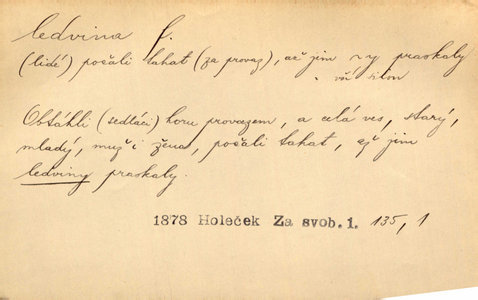 ledvina f.
(lidé) počali tahat (za provaz), až jim ~y praskaly
vší silou
Obtáhli (sedláci) horu provazem, a celá ves, starý,
mladý, muž i žena, počali tahat, až jim
ledviny praskaly.
1878 Holeček Za svob. 1. 135, 1